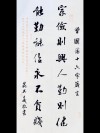 曾國藩十六字箴言
家儉則興人勤則健
能勤能儉永不貧賤